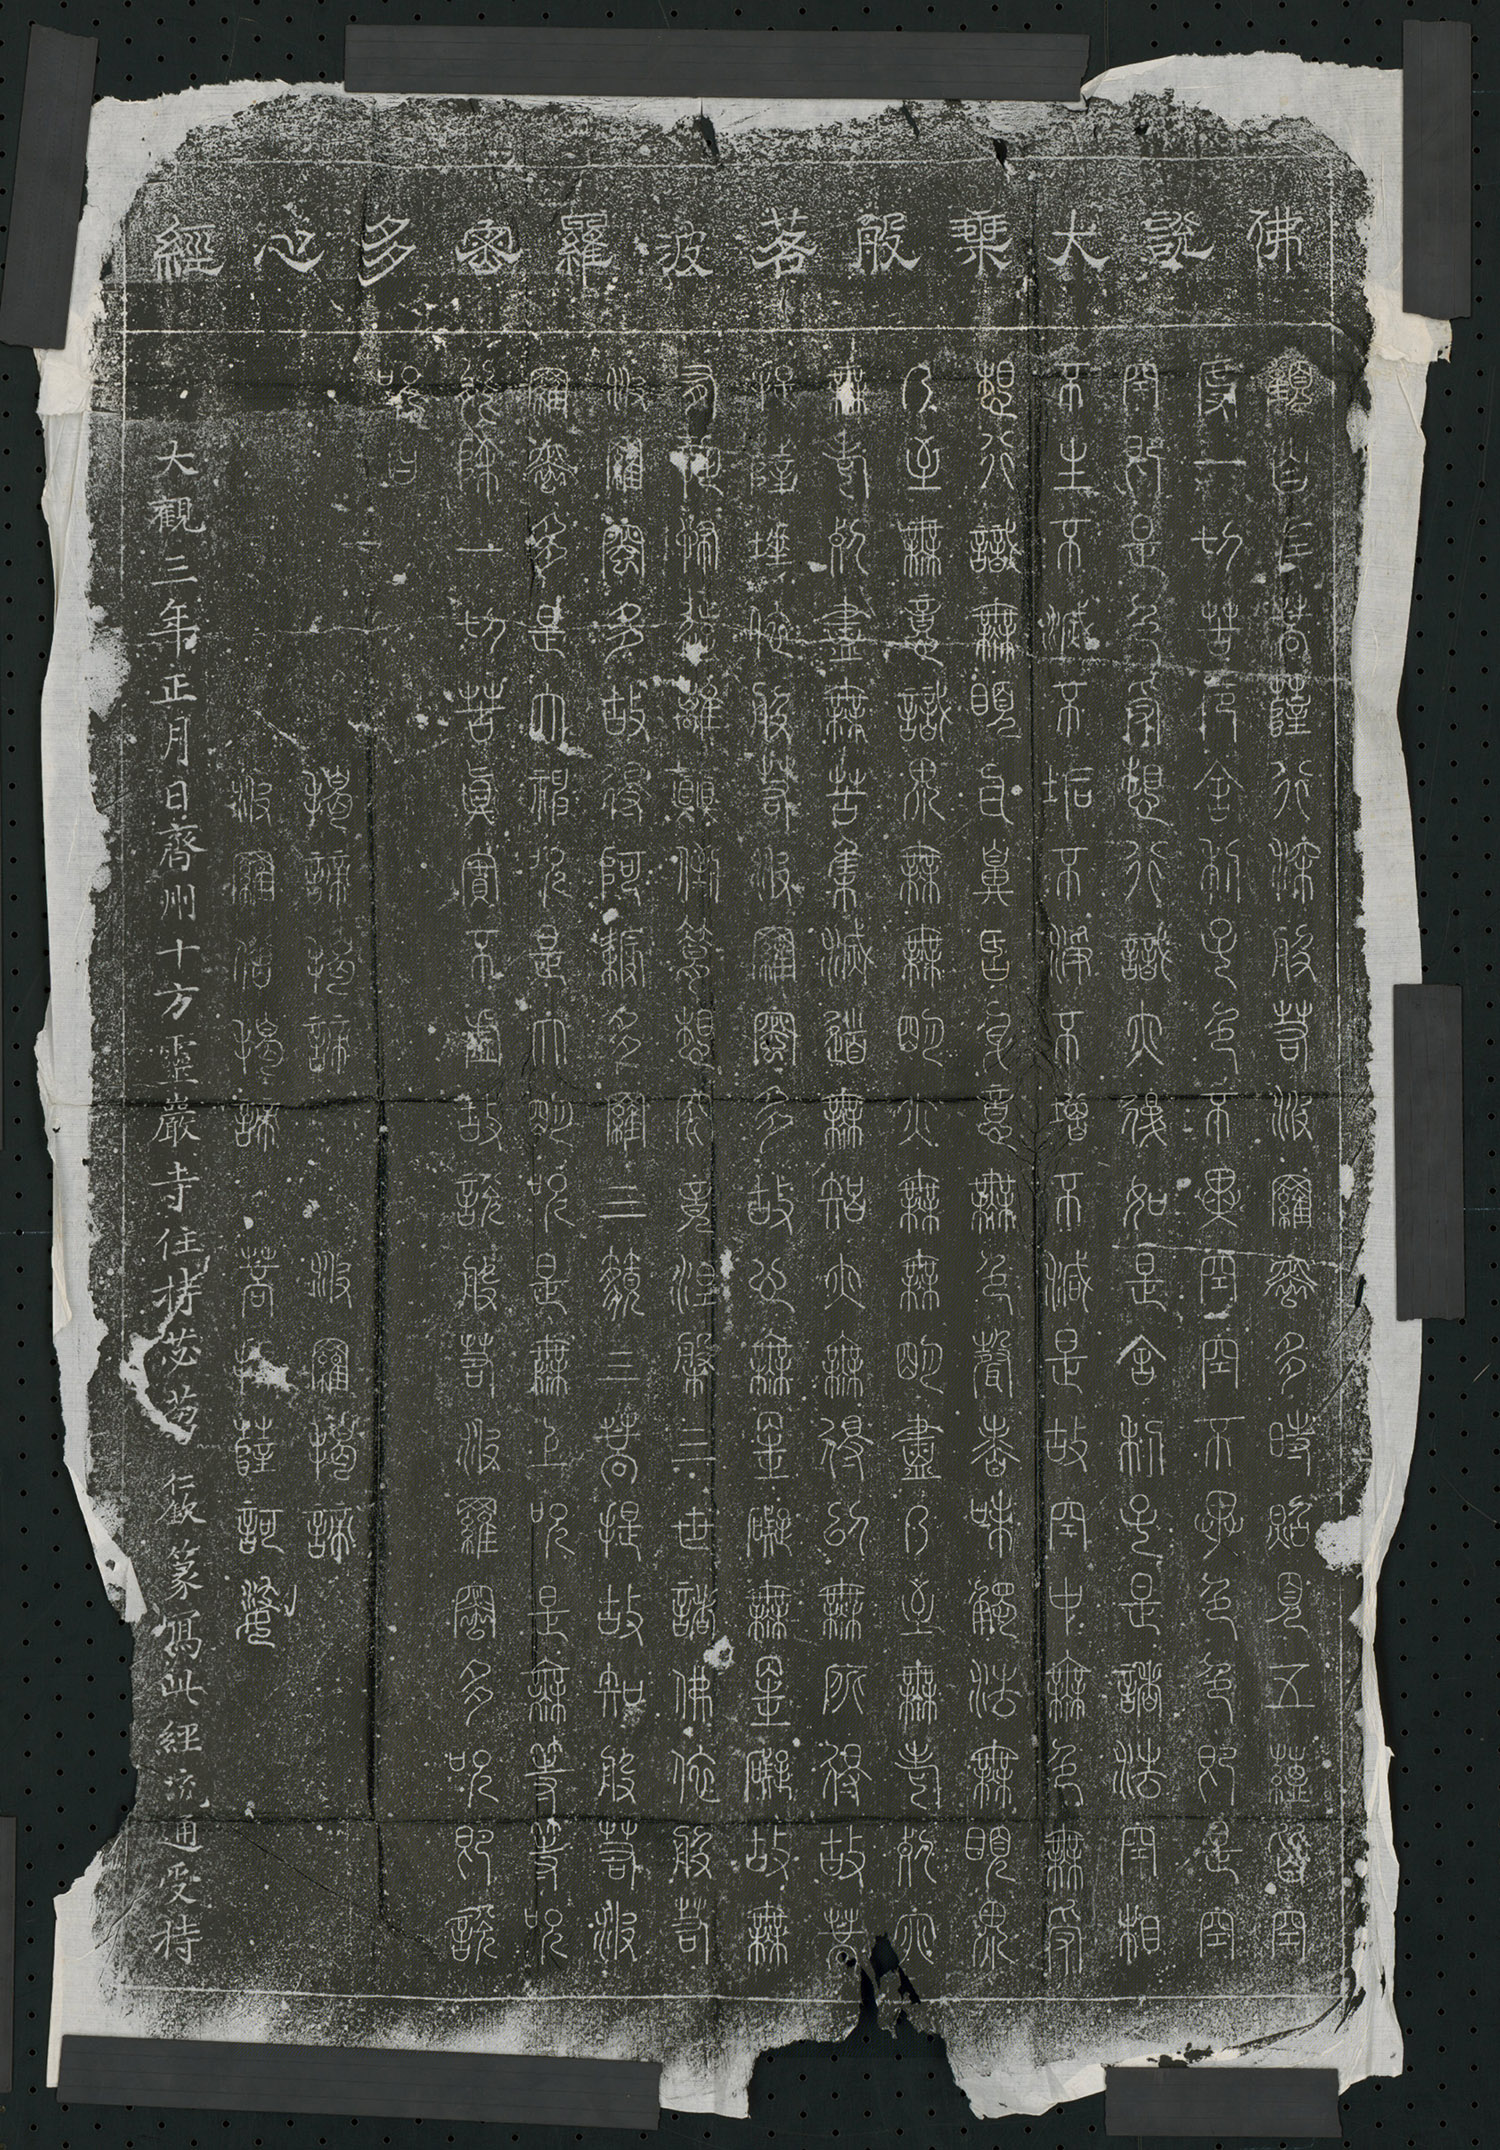 佛說大乘般若波羅蜜多心經
觀自在菩薩行深般若波羅蜜多時照見五蘊皆空
度一切苦厄舍利子色不異空空不異色色即是空
空即是色受想行識亦復如是舍利子是諸法空相
不生不滅不垢不淨不增不減是故空中無色無受
想行識無眼耳鼻舌身意無色聲香味觸法無眼界
乃至無意識界無無明亦無無明盡乃至無老死亦
無老死盡無苦集滅道無智亦無得以無所得故菩
提薩埵依般若波羅蜜多故心無罣礙無罣礙故無
有恐怖遠離顛倒夢想究竟涅槃三世諸佛依般若
波羅蜜多故得阿耨多羅三藐三菩提故知般若波
羅蜜多是大神咒是大明咒是無上咒是無等等咒
能除一切苦真實不虛故說般若波羅蜜多咒即說
咒曰
揭諦揭諦 波羅揭諦
波羅僧揭諦 菩提薩訶
大觀三年正月日齊州十方靈巖寺住持苾芻 仁欽篆寫此經流通受持